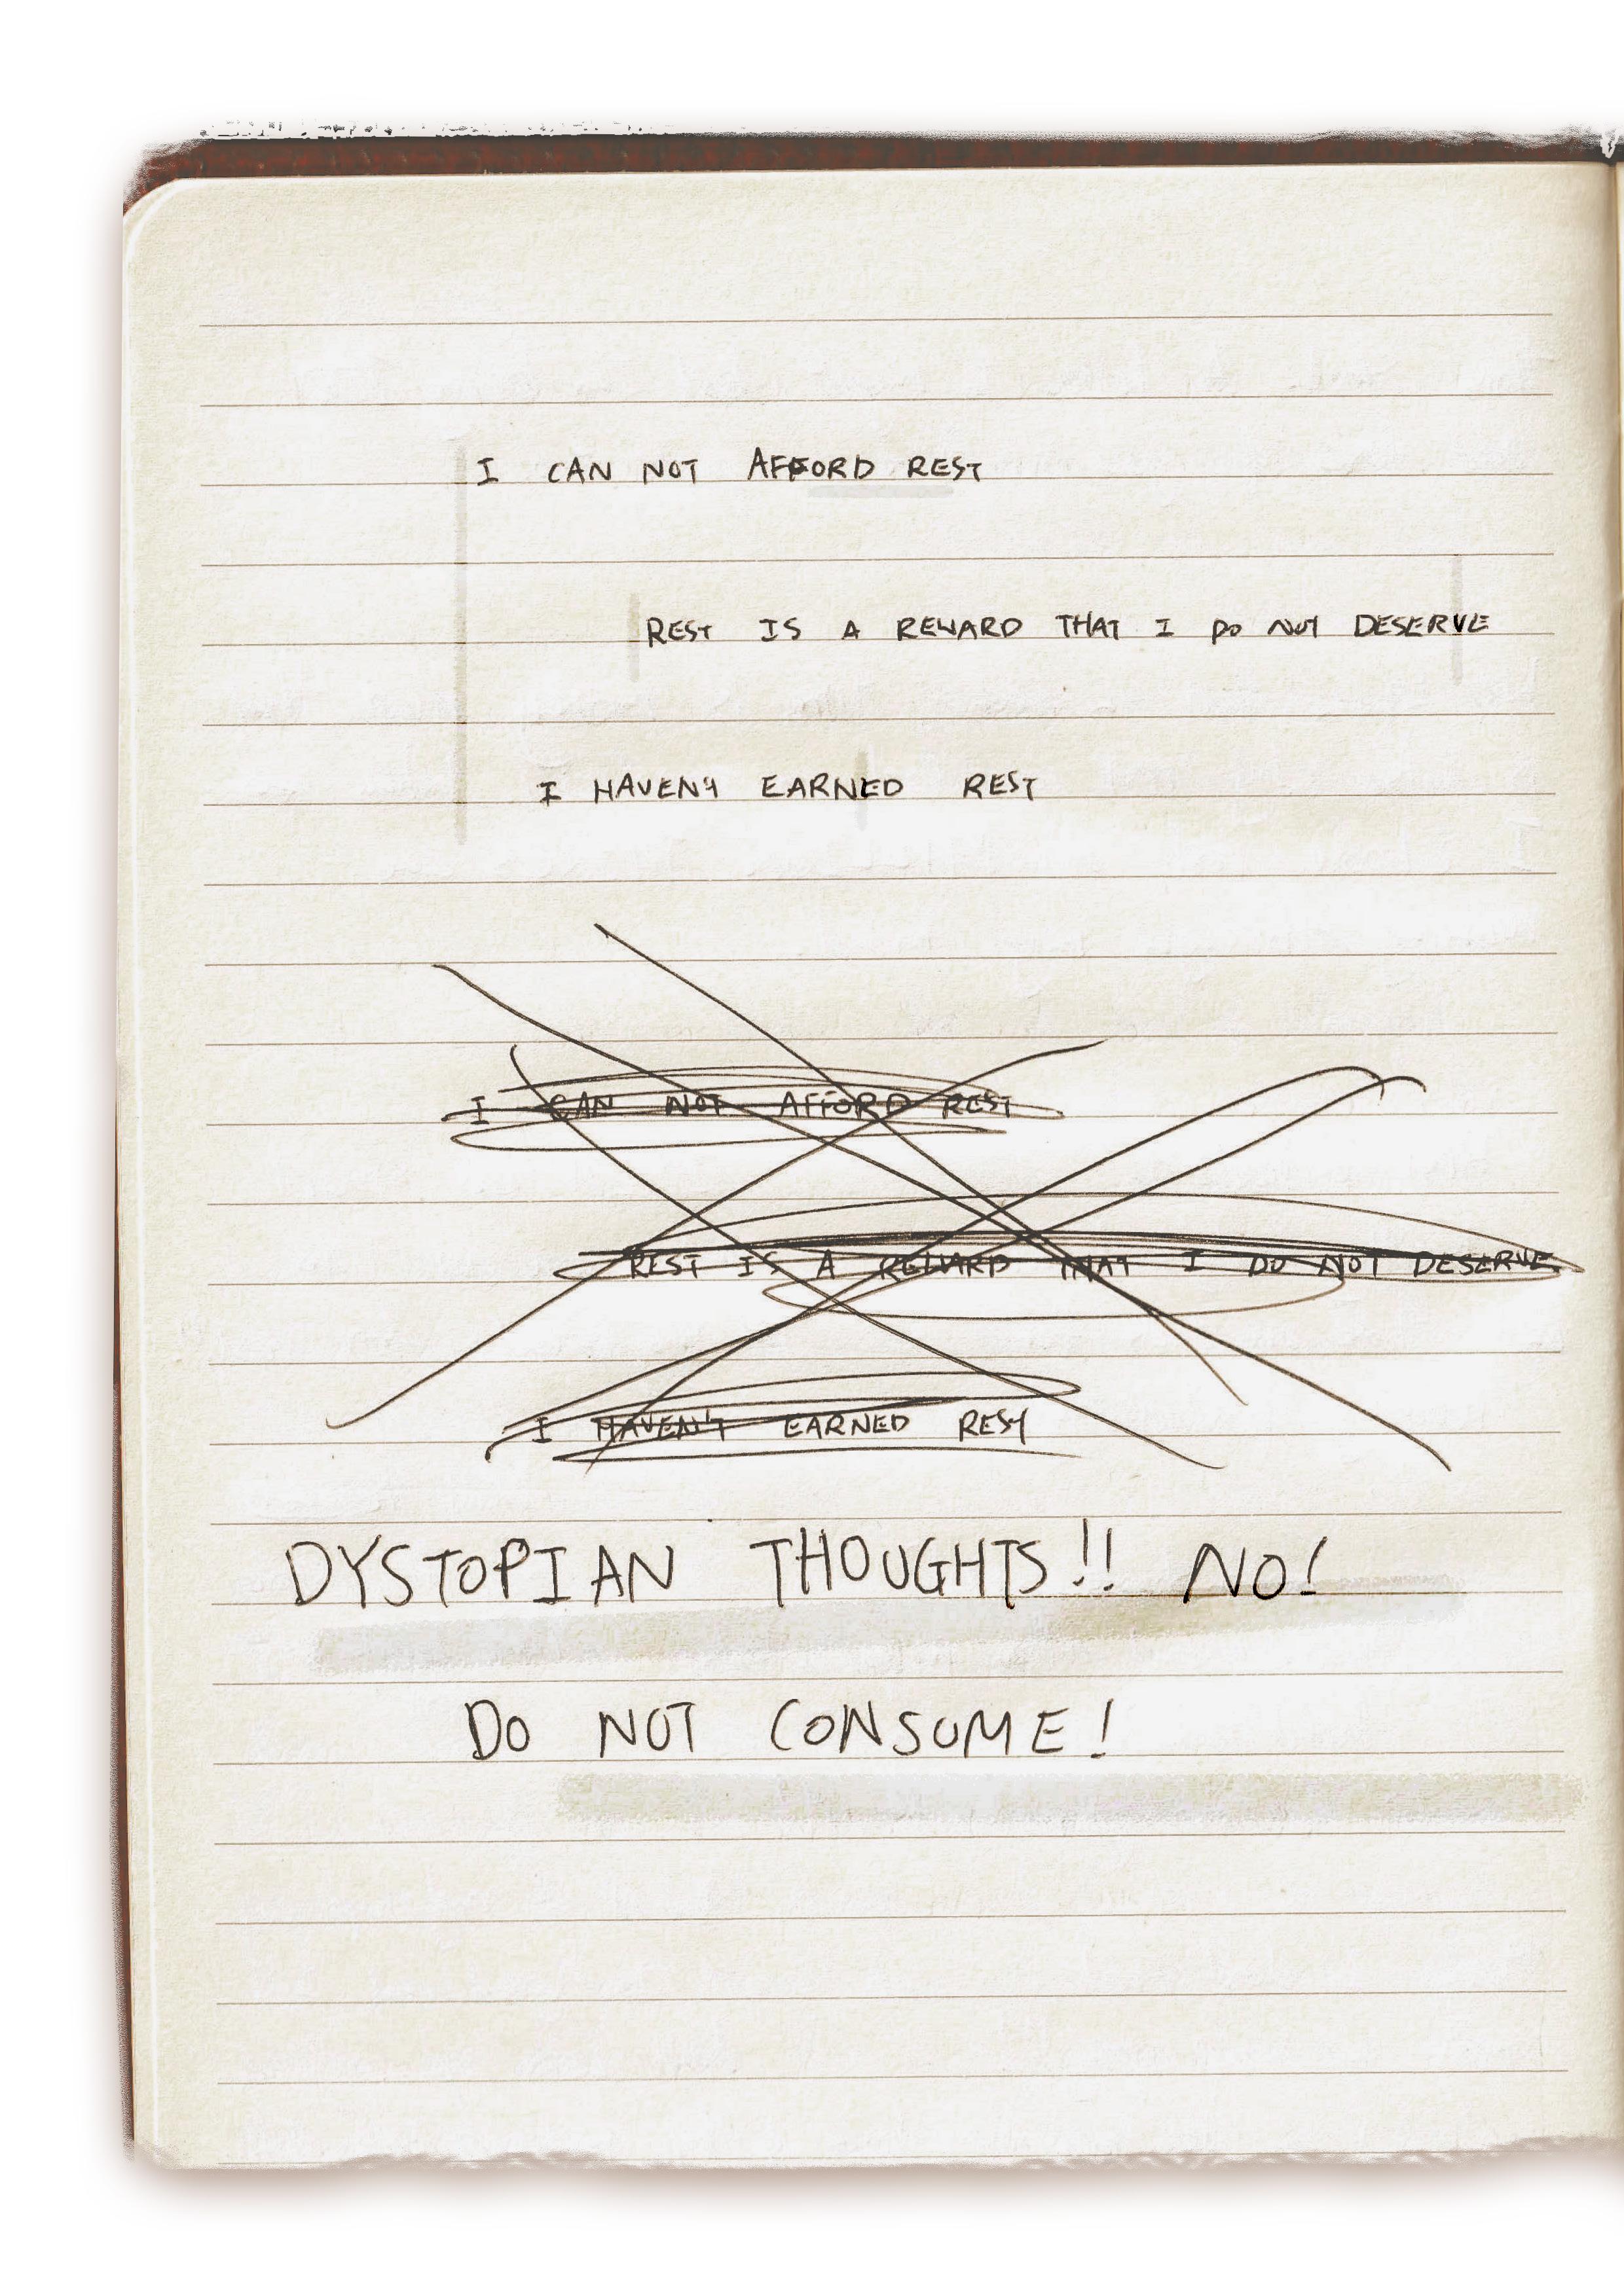 I CAN NOT AFFORD REST
REST IS A REWARD THAT I DO NOT DESERVE
I HAVEN'T EARNED REST
I CAN NOT AFFORD REST
REST IS A REWARD THAT I DO NOT DESERVE
I HAVEN'T EARNED REST
DYSTOPIAN THOUGHTS!! NO!
DO NOT CONSUME!